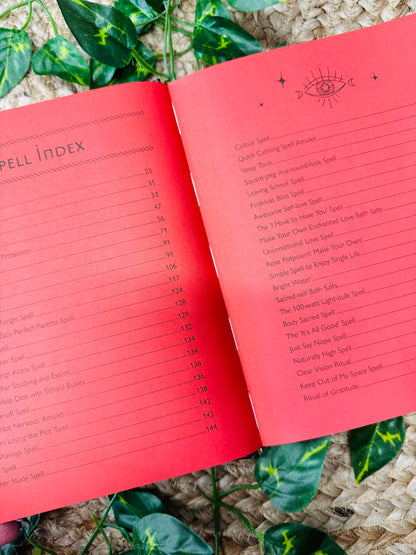 Spell Index
25
31
33
47
56
71
Protection
91
91
106
117
124
Forget Spell
128
Easy Perfect Parents Spell
129
Spell
132
ings Alone Spell
134
For Studying and Exams
134
Help Deal with School Bullies
136
e-off Spell
138
Not Nervous' Amulet
138
m Losing the Plot' Spell
142
havings Spell
143
Spell
144
her Study Spell
Colour Spell
Quick Calming Spell Amulet
Sleep Tonic
Square-peg-in-a-round-hole Spell
Leaving School Spell
First-kiss Bliss Spell
Awesome Self-love Spell
The 'I Have to Have You' Spell
Make Your Own Enchanted Love Bath Salts
Unconditional Love Spell
Rose Potpourri: Make Your Own!
Simple Spell to Enjoy Single Life
Bright Water
Sacred-self Bath Salts
The 100-watt Light-bulb Spell
Body Sacred Spell
The 'It's All Good' Spell
Just Say Nope Spell
Naturally High Spell
Clear Vision Ritual
Keep Out of My Space Spell
Ritual of Gratitude